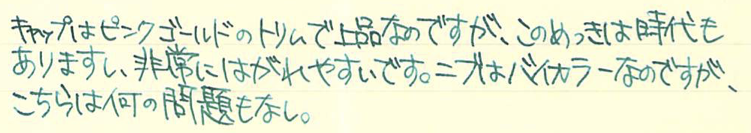 キャップはピンクゴールドのトリムで上品なのですが、このめっきは時代も
ありますし、非常にはがれやすいです。ニブはバイカラーなのですが、
こちらは何の問題もなし。